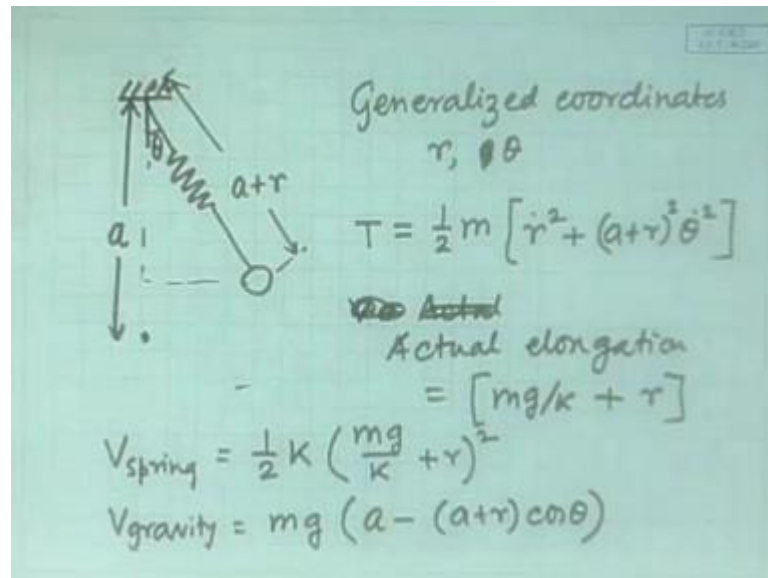 Generalized coordinates
r, θ
θ
a+r
a
T = ½ m [ṙ² + (a+r)² θ̇²]
Actual elongation
= [mg/K + r]
V_spring = ½ K (mg/K + r)²
V_gravity = mg (a - (a+r) cosθ)